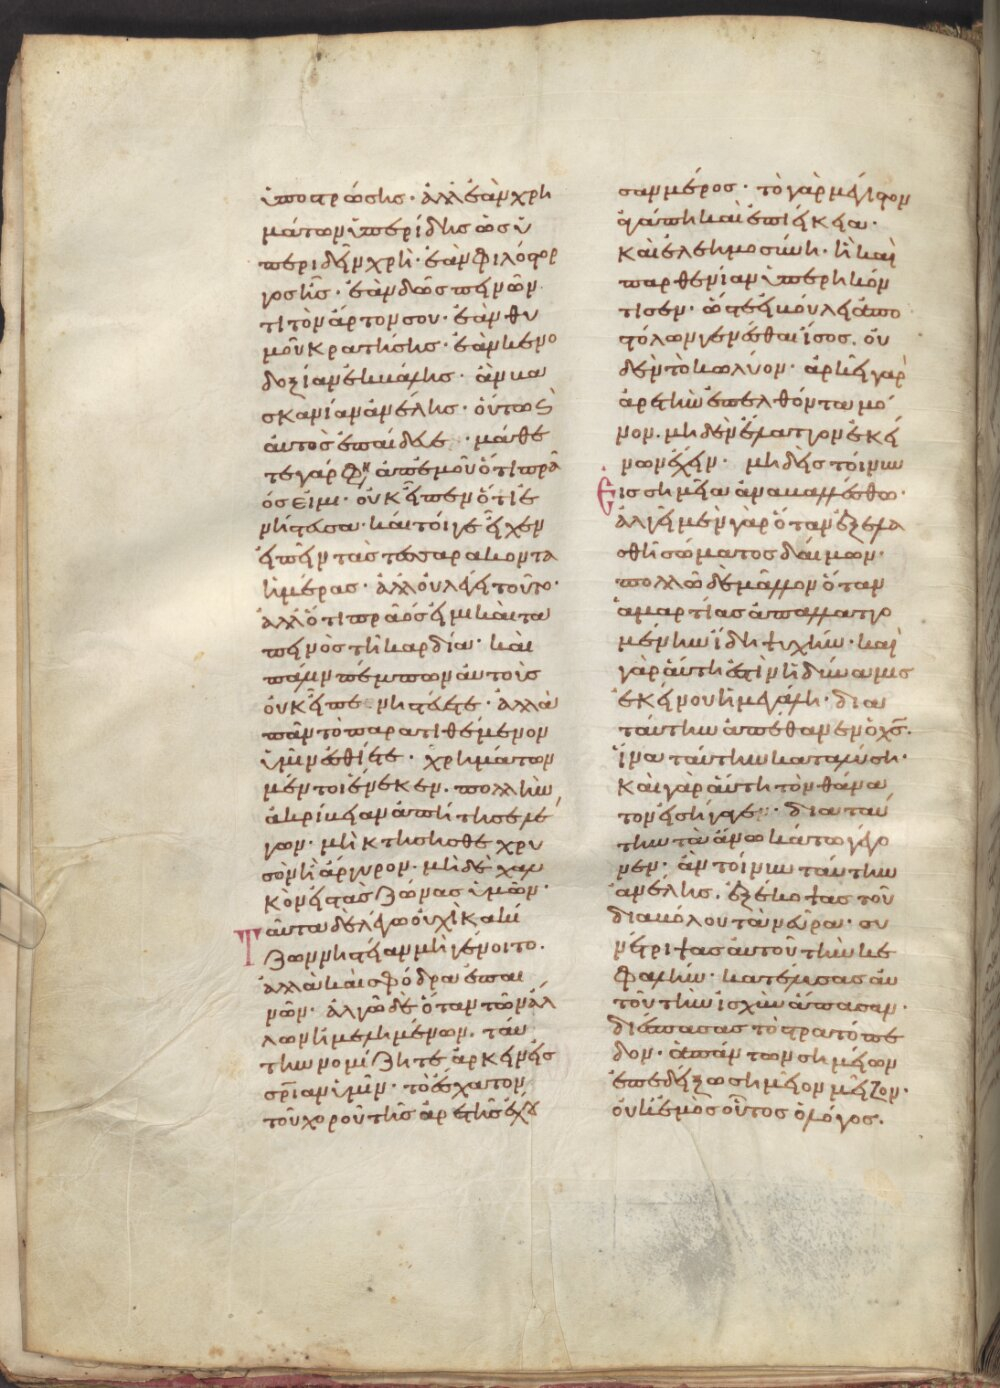 ὑποστρώσης· ἀλλ' ἐὰν χρη
μάτων ὑπερίδης ὡς ὑ
περιδεῖν χρὴ· ἐὰν φιλόστορ
γος ῆς· ἐὰν δῶς πεινῶν
τι τὸν ἄρτον σου· ἐὰν θυ
μοῦ κρατήσης· ἐὰν κενο
δοξίαν ἐκβάλης· ἂν βα
σκανίαν ἀνέλης· οὕτως
αὐτὸς ἐπαίδευε· μάθε
τε γάρ φη ἀπ' ἐμοῦ ὅτι πρᾶ
ός εἰμι· οὐκ εἶπεν ὅτι ἐ
νήστευσα· καίτοιγε εἶχεν
εἰπεῖν τὰς τεσσαράκοντα
ἡμέρας· ἀλλ' οὐ λέγει τοῦτο·
ἀλλ' ὅτι πρᾶός εἰμι καὶ τα
πεινὸς τῆ καρδία· καὶ
πάλιν πέμπων αὐτοὺς
οὐκ εἶπε νηστεύετε· ἀλλὰ
πᾶν τὸ παρατιθέμενον
ὑμῖν ἐσθίετε· χρημάτων
μέντοι ἕνεκεν· πολλὴν
ἀκρίβειαν ἀπήτησε λέ
γων· μὴ κτήσησθε χρυ
σὸν ἢ ἄργυρον· μὴ δὲ χαλ
κὸν εἰς τὰς ζώνας ὑμῶν·
Ταῦτα δὲ λέγω οὐχὶ κακί
ζων νηστείαν μὴ γένοιτο·
ἀλλὰ καὶ σφόδρα ἐπαι
νῶν· ἀλγῶ δὲ ὅταν τῶν ἄλ
λων ἠμελημένων· ταύ
την νομίζητε ἀρκεῖν εἰς
σρίαν ὑμῖν· τὸ ἔσχατον
τοῦ χοροῦ τῆς ἀρετῆς ἐχού
σαν μέρος· τὸ γὰρ μέγιστον
ἀγάπη καὶ ἐπιείκεια·
καὶ ἐλεημοσύνη· ἣ καὶ
παρθενίαν ὑπερηκόν
τισεν· ὥστε εἰ βούλει ἀπο
στόλων γενέσθαι ἴσος· οὐ
δὲν τὸ κωλύον· ἀρκεῖ γὰρ
ἀρετὴν ἐπελθόντα μό
νον· μηδὲν ἔλαττον ἐκεί
νων ἔχειν· μηδεὶς τοίνυν
Εἰς σημεῖα ἀναβαλλέσθω·
ἀλγεῖ μὲν γὰρ ὅταν ἐξελα
σθῆ σώματος δαίμων·
πολλῶ δὲ μᾶλλον ὅταν
ἁμαρτίας ἀπαλλαττο
μένην ἴδη ψυχήν· καὶ
γὰρ αὕτη ἐστὶν ἡ δύναμις
ἐκείνου ἡ μεγάλη· δια
ταύτην ἀπέθανεν ὁ χς·
ἵνα ταύτην καταλύση·
καὶ γὰρ αὕτη τὸν θάνα
τον εἰσήγαγεν· δια ταύ
την τὰ ἄνω κάτω γέγο
νεν· ἂν τοίνυν ταύτην
ἀνέλης· ἐξέκοψας τοῦ
διαβόλου τὰ νεῦρα· συ
νέτριψας αὐτοῦ τὴν κε
φαλήν· κατέλυσας αὐ
τοῦ τὴν ἰσχὺν ἅπασαν·
διέσπασας τὸ στρατόπε
δον· ἁπάντων σημείων
ἐπεδείξω σημεῖον μεῖζον·
οὐκ ἐμὸς οὗτος ὁ λόγος.